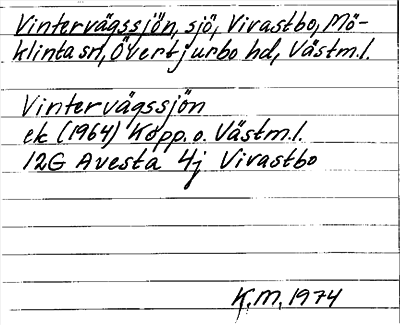 Vintervägssjön, sjö, Vivastbo, Mö-
klinta sn, Övertjurbo hd, Västm.l.
Vintervägssjön
ek (1964) Kopp.o. Västm.l.
12G Avesta 4j Vivastbo
K.M. 1974